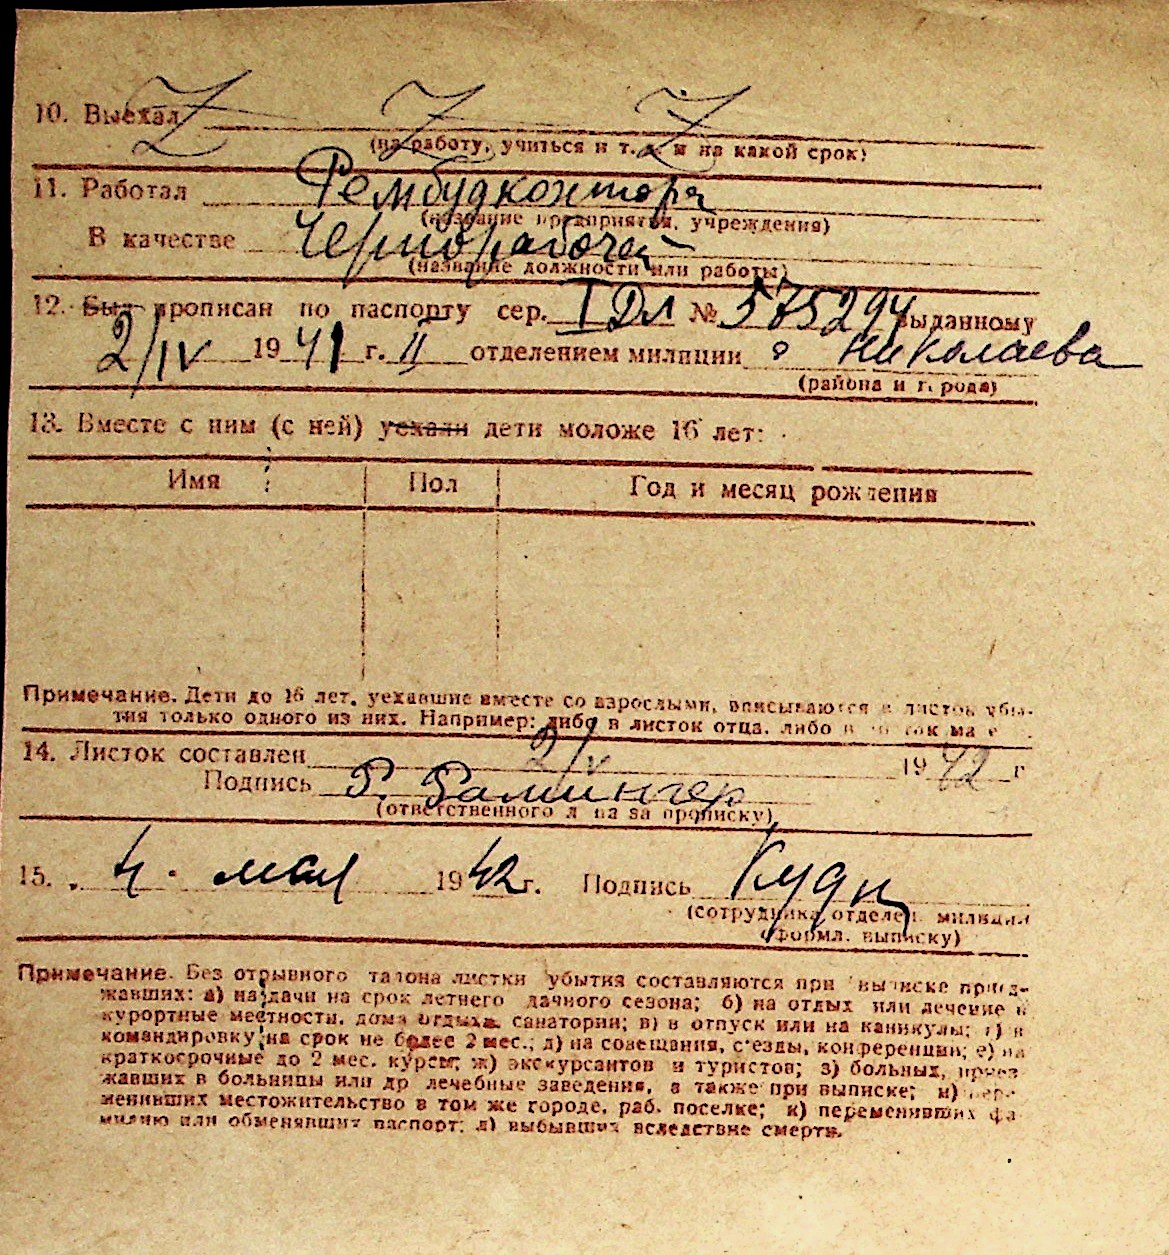 10. Выехал Z Z Z
(на работу, учиться и т. д. и на какой срок)
11. Работал Рембудконтора
(название предприятия, учреждения)
В качестве Чернорабочей
(название должности или работы)
12. Был прописан по паспорту сер. I ДЛ № 575294 выданному
2/IV 1941 г. II отделением милиции г Николаева
(района и города)
13. Вместе с ним (с ней) уехали дети моложе 16 лет:
Имя Пол Год и месяц рождения
Примечание. Дети до 16 лет, уехавшие вместе со взрослыми, вписываются в листок убы-
тия только одного из них. Например: либо в листок отца, либо в листок ма
14. Листок составлен 2/V 1942 г
Подпись Р. Рамингер
(ответственного лица за прописку)
15. 4. мая 1942 г. Подпись
(сотрудника отделен. милиции
оформл. выписку)
Примечание. Без отрывного талона листки убытия составляются при выписке приез-
жавших: а) на дачи на срок летнего дачного сезона; б) на отдых или лечение в
курортные местности, дома отдыха, санатории; в) в отпуск или на каникулы; г) в
командировку на срок не более 2 мес.; д) на совещания, съезды, конференции; е) на
краткосрочные до 2 мес. курсы; ж) экскурсантов и туристов; з) больных, приез-
жавших в больницы или др лечебные заведения, а также при выписке; и) пере-
менивших местожительство в том же городе, раб. поселке; к) переменивших фа-
милию или обменявших паспорт; л) выбывших вследствие смерти.